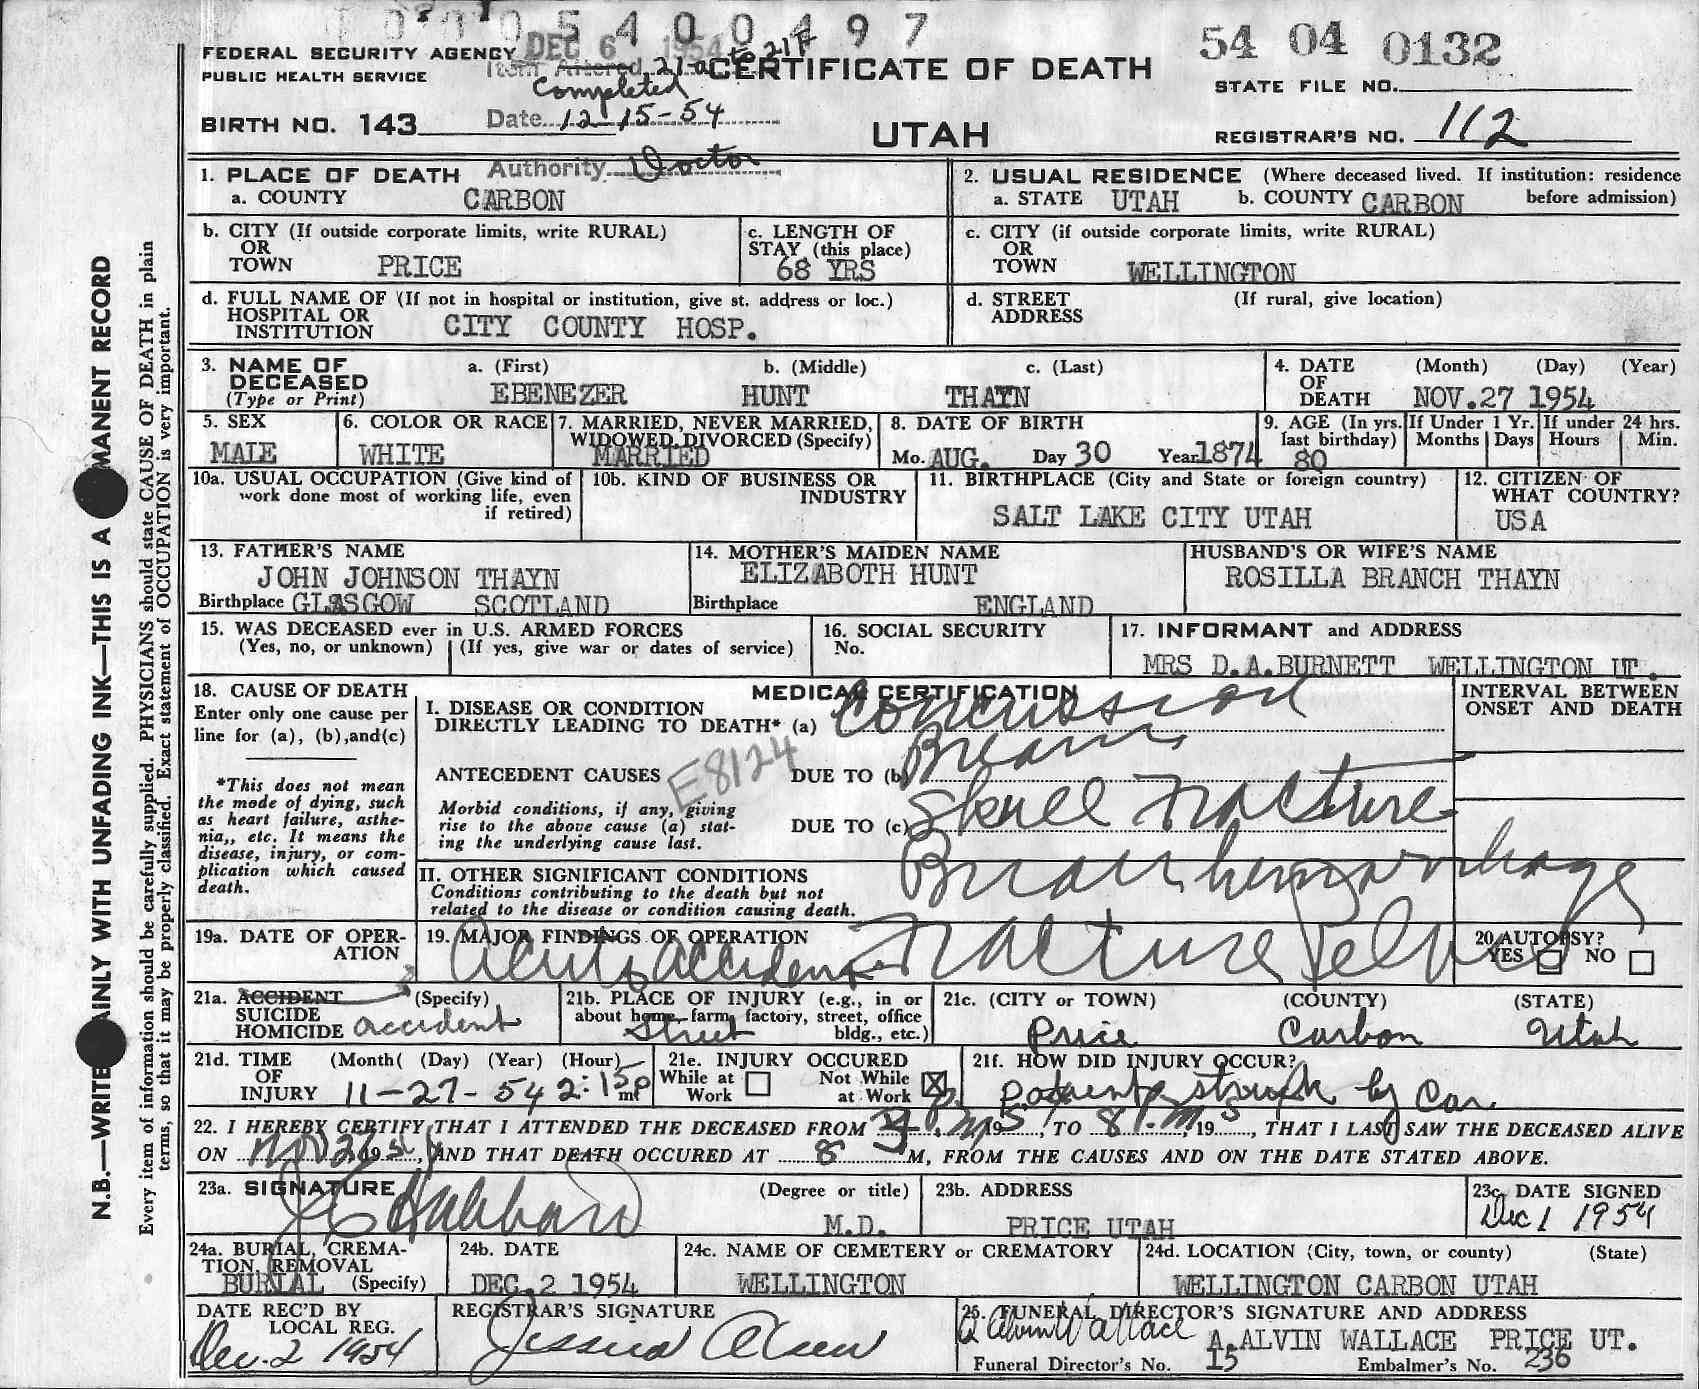 5400497
54 04 0132
FEDERAL SECURITY AGENCY
PUBLIC HEALTH SERVICE
DEC 6 1954
Item Altered 21a to 21f
Completed
Date 12-15-54
Authority Doctor
CERTIFICATE OF DEATH
UTAH
STATE FILE NO.
BIRTH NO. 143
REGISTRAR'S NO. 112
1. PLACE OF DEATH
a. COUNTY CARBON
2. USUAL RESIDENCE (Where deceased lived. If institution: residence before admission)
a. STATE UTAH b. COUNTY CARBON
b. CITY (If outside corporate limits, write RURAL)
OR
TOWN PRICE
c. LENGTH OF
STAY (this place)
68 YRS
c. CITY (if outside corporate limits, write RURAL)
OR
TOWN WELLINGTON
d. FULL NAME OF (If not in hospital or institution, give st. address or loc.)
HOSPITAL OR
INSTITUTION CITY COUNTY HOSP.
d. STREET (If rural, give location)
ADDRESS
3. NAME OF
DECEASED
(Type or Print)
a. (First) b. (Middle) c. (Last)
EBENEZER HUNT THAYN
4. DATE (Month) (Day) (Year)
OF
DEATH NOV.27 1954
5. SEX
MALE
6. COLOR OR RACE
WHITE
7. MARRIED, NEVER MARRIED,
WIDOWED, DIVORCED (Specify)
MARRIED
8. DATE OF BIRTH
Mo. AUG. Day 30 Year 1874
9. AGE (In yrs.
last birthday)
80
If Under 1 Yr.
Months Days
If under 24 hrs.
Hours Min.
10a. USUAL OCCUPATION (Give kind of
work done most of working life, even
if retired)
10b. KIND OF BUSINESS OR
INDUSTRY
11. BIRTHPLACE (City and State or foreign country)
SALT LAKE CITY UTAH
12. CITIZEN OF
WHAT COUNTRY?
USA
13. FATHER'S NAME
JOHN JOHNSON THAYN
Birthplace GLASGOW SCOTLAND
14. MOTHER'S MAIDEN NAME
ELIZABOTH HUNT
Birthplace ENGLAND
HUSBAND'S OR WIFE'S NAME
ROSILLA BRANCH THAYN
15. WAS DECEASED ever in U.S. ARMED FORCES
(Yes, no, or unknown) (If yes, give war or dates of service)
16. SOCIAL SECURITY
No.
17. INFORMANT and ADDRESS
MRS D.A.BURNETT WELLINGTON UT.
18. CAUSE OF DEATH
Enter only one cause per
line for (a), (b),and(c)
*This does not mean
the mode of dying, such
as heart failure, asthe-
nia,, etc. It means the
disease, injury, or com-
plication which caused
death.
MEDICAL CERTIFICATION
I. DISEASE OR CONDITION
DIRECTLY LEADING TO DEATH* (a) Concussion
Brain
ANTECEDENT CAUSES E8124 DUE TO (b)
Morbid conditions, if any, giving
rise to the above cause (a) stat-
ing the underlying cause last.
DUE TO (c) Skull Fracture
II. OTHER SIGNIFICANT CONDITIONS
Conditions contributing to the death but not
related to the disease or condition causing death.
Brain hemorrhage
Fracture Pelvis
INTERVAL BETWEEN
ONSET AND DEATH
19a. DATE OF OPER-
ATION
19. MAJOR FINDINGS OF OPERATION
Auto accident
20. AUTOPSY?
YES NO
21a. ACCIDENT (Specify)
SUICIDE
HOMICIDE accident
21b. PLACE OF INJURY (e.g., in or
about home, farm, factory, street, office
bldg., etc.)
Street
21c. (CITY or TOWN) (COUNTY) (STATE)
Price Carbon Utah
21d. TIME (Month( (Day) (Year) (Hour)
OF
INJURY 11-27-54 2:15p m
21e. INJURY OCCURED
While at Work Not While at Work
21f. HOW DID INJURY OCCUR?
patient struck by Car
22. I HEREBY CERTIFY THAT I ATTENDED THE DECEASED FROM 19 , TO 8 P.M, 19 , THAT I LAST SAW THE DECEASED ALIVE
ON Nov 27, 1954, AND THAT DEATH OCCURED AT 8 M, FROM THE CAUSES AND ON THE DATE STATED ABOVE.
23a. SIGNATURE (Degree or title)
Hubbard M.D.
23b. ADDRESS
PRICE UTAH
23c. DATE SIGNED
Dec 1 1954
24a. BURIAL, CREMA-
TION, REMOVAL
BURIAL (Specify)
24b. DATE
DEC.2 1954
24c. NAME OF CEMETERY or CREMATORY
WELLINGTON
24d. LOCATION (City, town, or county) (State)
WELLINGTON CARBON UTAH
DATE REC'D BY
LOCAL REG.
Dec. 2 1954
REGISTRAR'S SIGNATURE
Jessica Olsen
25. FUNERAL DIRECTOR'S SIGNATURE AND ADDRESS
A Alvin Wallace A.ALVIN WALLACE PRICE UT.
Funeral Director's No. 15 Embalmer's No. 236
N.B.—WRITE PLAINLY WITH UNFADING INK—THIS IS A PERMANENT RECORD
Every item of information should be carefully supplied. PHYSICIANS should state CAUSE OF DEATH in plain
terms, so that it may be properly classified. Exact statement of OCCUPATION is very important.